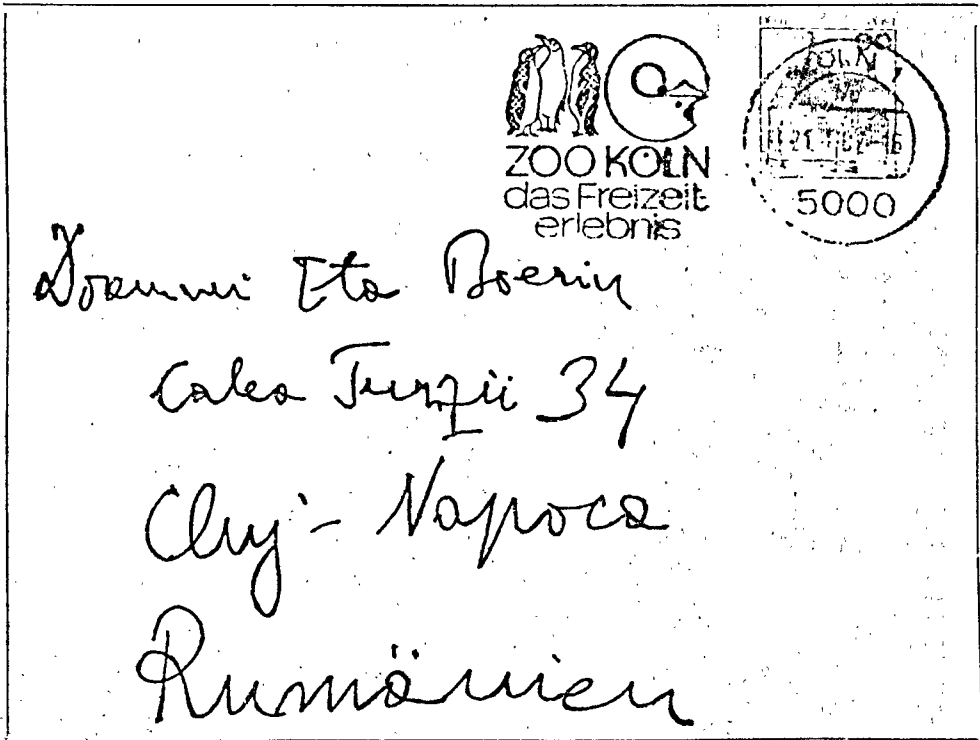 ZOO KÖLN
das Freizeit
erlebnis
KÖLN
5000
Doamnei Eta Boeriu
Calea Turzii 34
Cluj-Napoca
Rumänien